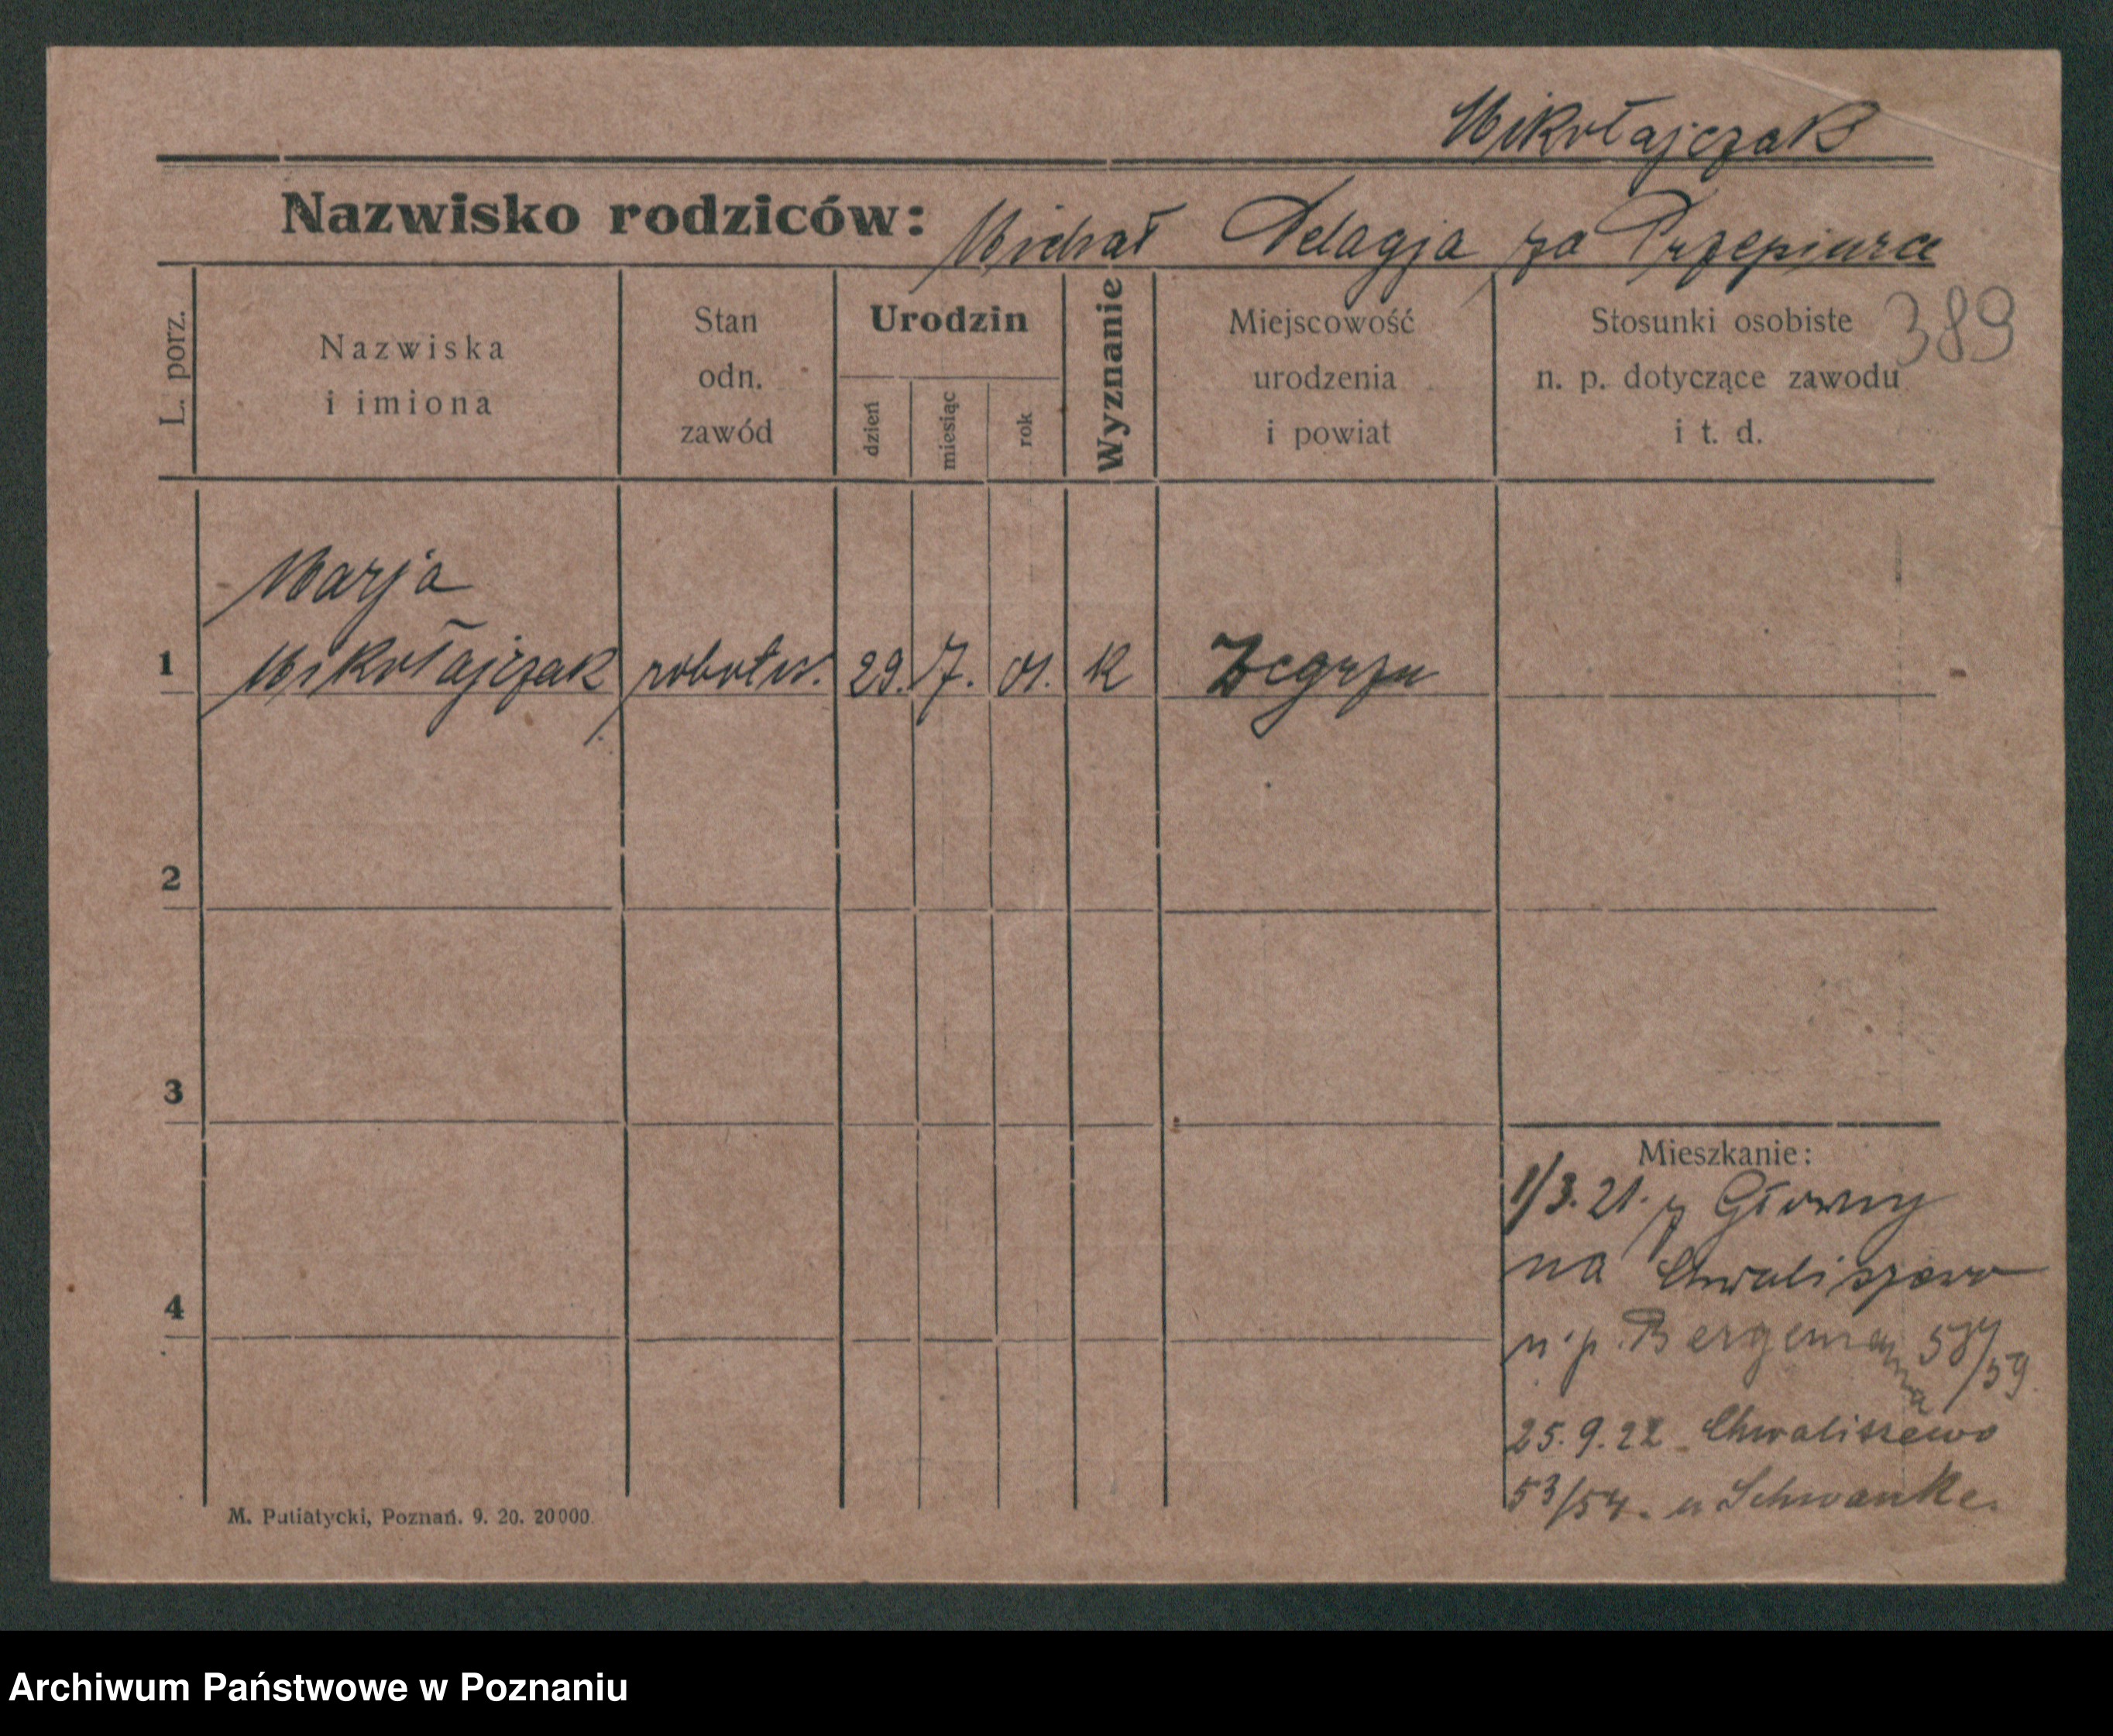 Mikołajczak
Nazwisko rodziców: Michał Pelagja za Przepiurce
389
L. porz.
Nazwiska
i imiona
Stan
odn.
zawód
Urodzin
dzień
miesiąc
rok
Wyznanie
Miejscowość
urodzenia
i powiat
Stosunki osobiste
n. p. dotyczące zawodu
i t. d.
Marja
1 Mikołajczak robotn. 29. 7. 01. K Zegrzu
2
3
4
Mieszkanie:
1/3. 21. z Główny
na Chwaliszewo
n. p. Bergemanna 58/59.
25. 9. 22 Chwaliszewo
53/54. u Schwanke.
M. Putiatycki, Poznań. 9. 20. 20000.
Archiwum Państwowe w Poznaniu